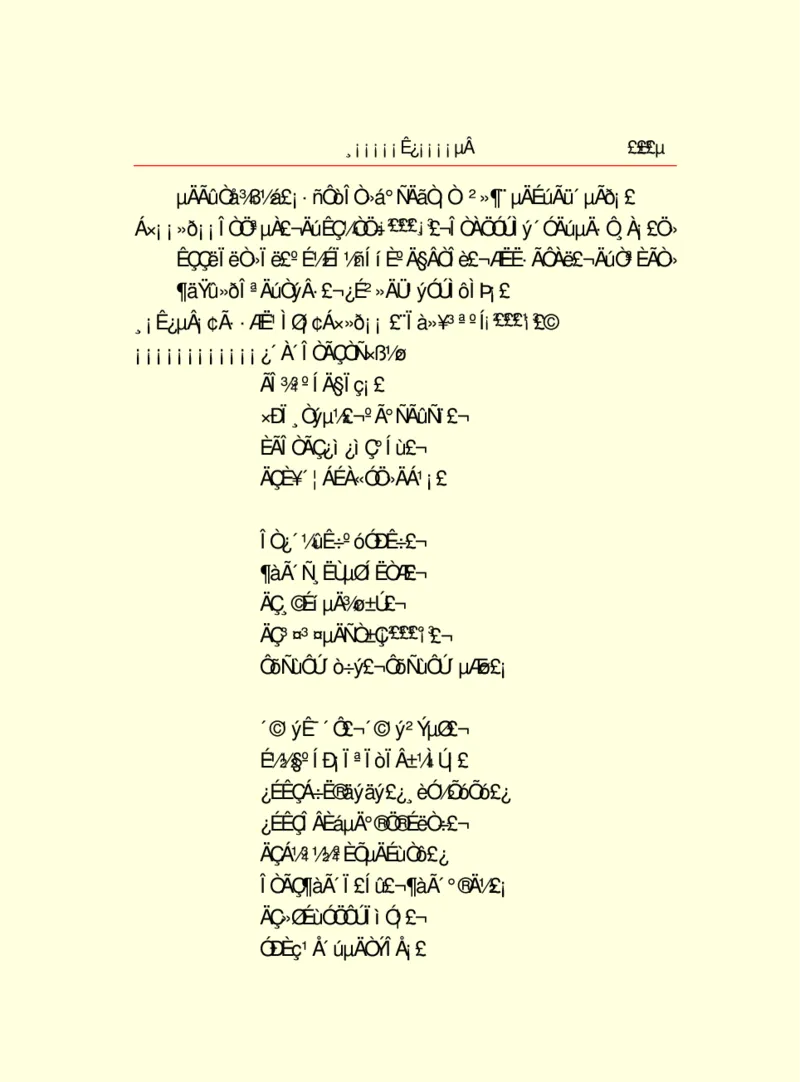 ¸¡¡¡¡¡Ê¿¡¡¡¡µÂ ££££µ
µÄÃûÒå¾ß½á£¡·ñÔòÎÒ»á°ÑÄãÒ¡Ò ²»¶¨µÄÉúÃü´µÃð¡£
Á×¡¡»ð¡¡ÎÒÒªµÀ£¬ÄúÊÇ½ÒÖ÷£££¡£¬ÎÒÀÖÓÚÌý´ÓÄúµÄ·Ô¸À¡£Ö»
ÊÇÇëÏëÒ»Ïë£ºÉ½ÉÏ½ñÍíÈºÄ§ÂÒÎè£¬ÆËË·ÃÔÀë£¬ÄúÒªÈÃÒ»
¶äŸû»ðÎªÄúÒýÂ·£¬¿É²»ÄÜ¹ýÓÚÌôÌÞ¡£
¸¡Ê¿µÂ¡¢Ã··ÆË¹ÌØ¡¢Á×»ð¡¡£¨Ïà»¥³ªºÍ¡££££©
¡¡¡¡¡¡¡¡¡¡¡¡¿´À´ÎÒÃÇÒÑ×ß½ø
ÃÎ¾³ºÍÄ§Ïç¡£
×ÐÏ¸Òýµ¼£¬ºÃ°ÑÃûÑï£¬
ÈÃÎÒÃÇ¿ì¿ìÇ°Íù£¬
ÄÇÈ¥´¦ÁÉÀ«ÓÖ»ÄÁ¹¡£
ÎÒ¿´¼ûÊ÷ºóÓÐÊ÷£¬
¶àÃ´Ñ¸ËÙµØÍËÒÆ£¬
ÄÇ¸©ÉíµÄ¾ø±Ú£¬
ÄÇ³¤³¤µÄÑÒ±Ç££££¡£¬
ÔõÑùÔÚ´ò÷ý£¬ÔõÑùÔÚ´µÆø£¡
´©¹ýÊ¯´Ô£¬´©¹ý²ÝµØ£¬
É½½§ºÍÐ¡ÏªÏòÏÂ±¼Ì¡Ú£
¿ÉÊÇÁ÷Ë®äýäý£¿¸èÓ½ÕõÕõ£¿
¿ÉÊÇÎÂÈáµÄ°®Ö®ÉëÒ÷£¬
ÄÇÁ¼³½¾ªÈÕµÄÉùÒô£¿
ÎÒÃÇ¶àÃ´Ï£Íû£¬¶àÃ´°®Ä½£¡
ÄÇ»ØÉùÓÖÔÚÏìÓ¦£¬
ÓÐÈç¹Å´úµÄÒÝÎÅ¡£